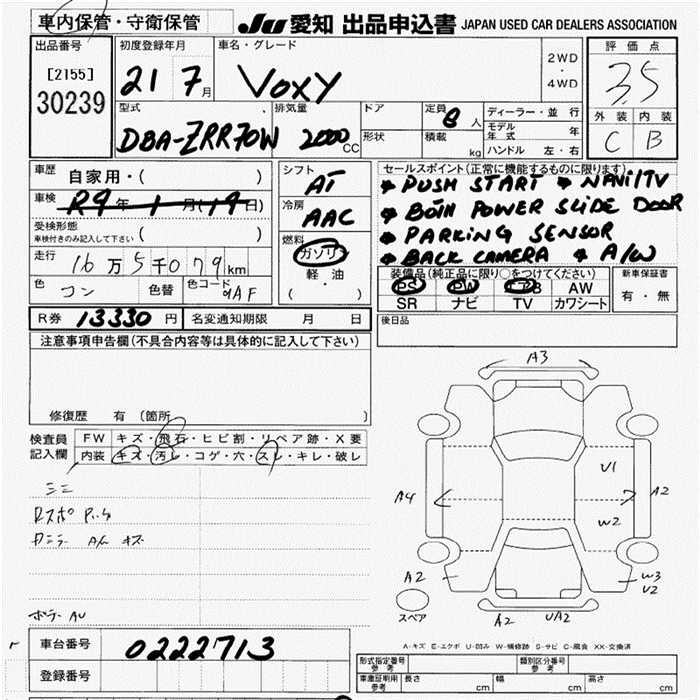 車内保管・守衛保管 JU 愛知 出品申込書 JAPAN USED CAR DEALERS ASSOCIATION
出品番号 初度登録年月 車名・グレード 2WD ・ 4WD 評価点
[2155] 21 7月 VOXY 3.5
30239
型式 排気量 ドア 定員 8人 ディーラー・並行 外装 内装
モデル年式 年
DBA-ZRR70W 2000CC 形状 積載 kg ハンドル 左・右 C B
車歴 自家用・( ) シフト AT セールスポイント(正常に機能するものに限ります)
PUSH START NAVI/TV
車検 R9年1月(19日) 冷房 AAC BOTH POWER SLIDE DOOR
受検形態 車検付きのみ記入して下さい ( ) PARKING SENSOR
燃料 ガソリン BACK CAMERA A/W
走行 16万5千079km 軽・油 ( )
装備品(純正品に限り○をつけてください) 新車保証書
色 コン 色替 色コード 9AF
PS PW エアB AW 有・無
SR ナビ TV カワシート
R券 13330円 名変通知期限 月 日 後日品
注意事項申告欄(不具合内容等は具体的に記入して下さい)
修復歴 有(箇所 )
検査員記入欄 FW キズ・飛石・ヒビ割・リペア跡・X要
内装 キズ・汚レ・コゲ・穴・スレ・キレ・破レ
A3
U1
A4 A2
W2
A2 W3
U2
スペア
A2 UA2
A-キズ E-エクボ U-凹み W-補修跡 S-サビ C-腐食 XX-交換済
車台番号 0222713
登録番号
形式指定番号 参考 類別区分番号 参考
車庫証明用 参考 長さ cm 幅 cm 高さ cm